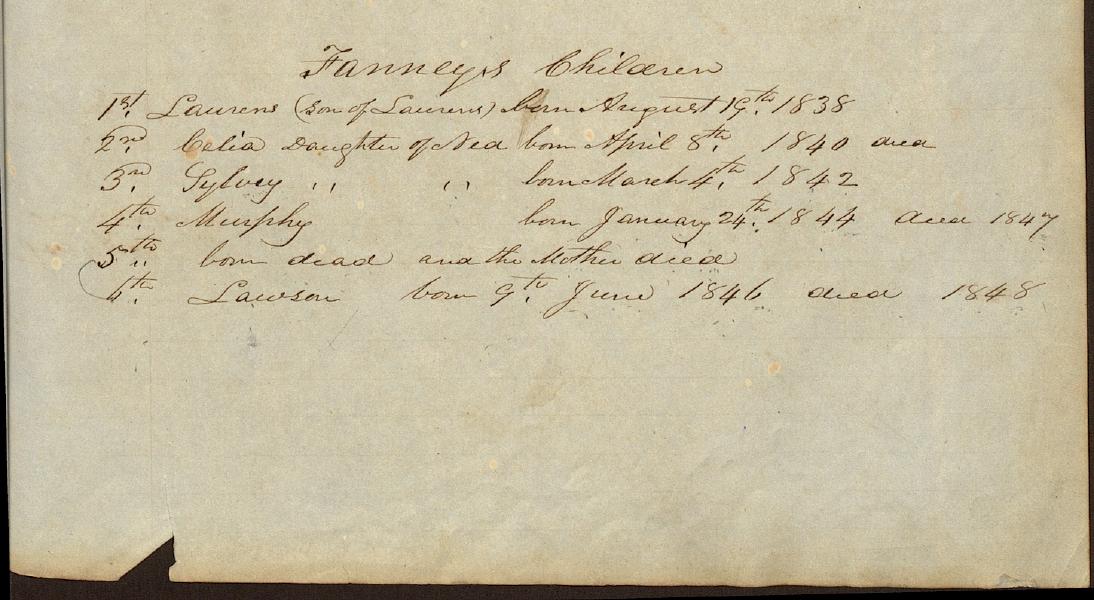 Fanneys Children
1st. Laurens (son of Laurens) born August 19th. 1838
2nd. Celia Daughter of Ned born April 8th. 1840 died
3rd. Sylvey " " born March 4th. 1842
4th. Murphy born January 24th. 1844 died 1847
5th born dead and the Mother died
4th. Lawson born 9th. June 1846 died 1848